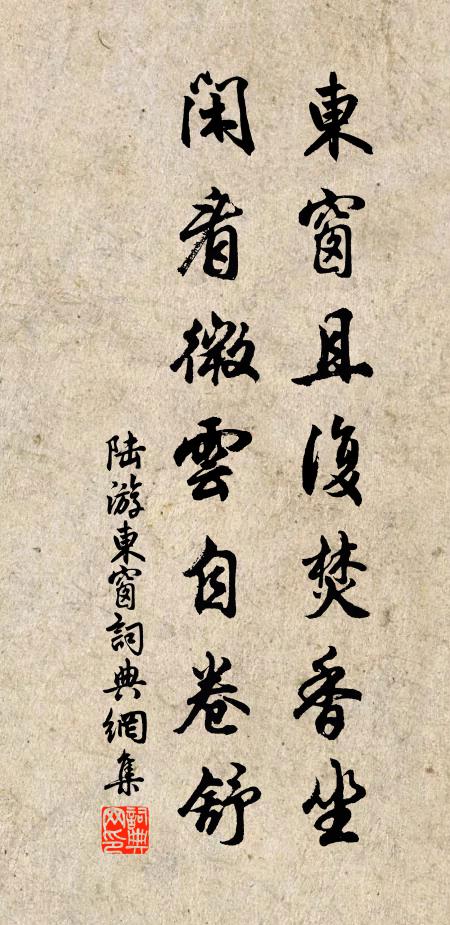 東窗且復焚香坐
閑看微雲自卷舒
陸游東窗詞典網集
詞典網印